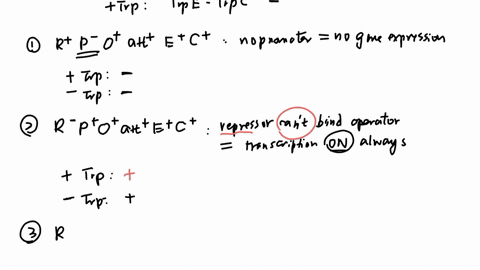 +Trp: TrpE - TrpC -
① R⁺ P⁻ O⁺ att⁺ E⁺ C⁺ : no promoter = no gene expression
+ Trp: -
- Trp: -
② R⁻ P⁺ O⁺ att⁺ E⁺ C⁺ : repressor can't bind operator
= transcription ON always
+ Trp: +
- Trp: +
③ R